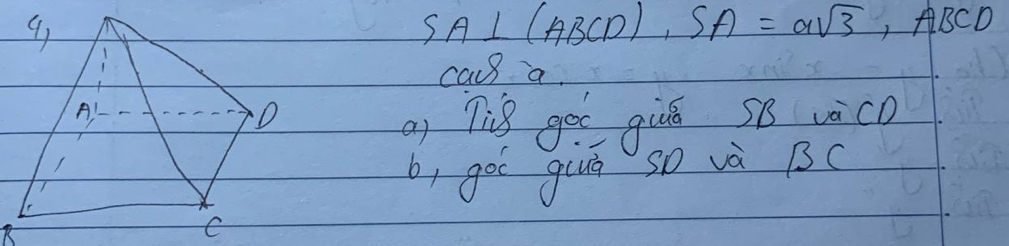 4,
SA ⊥ (ABCD), SA = a√3, ABCD
cạnh a.
A
D
a, Tính góc giữa SB và CD
b, góc giữa SD và BC
B
C